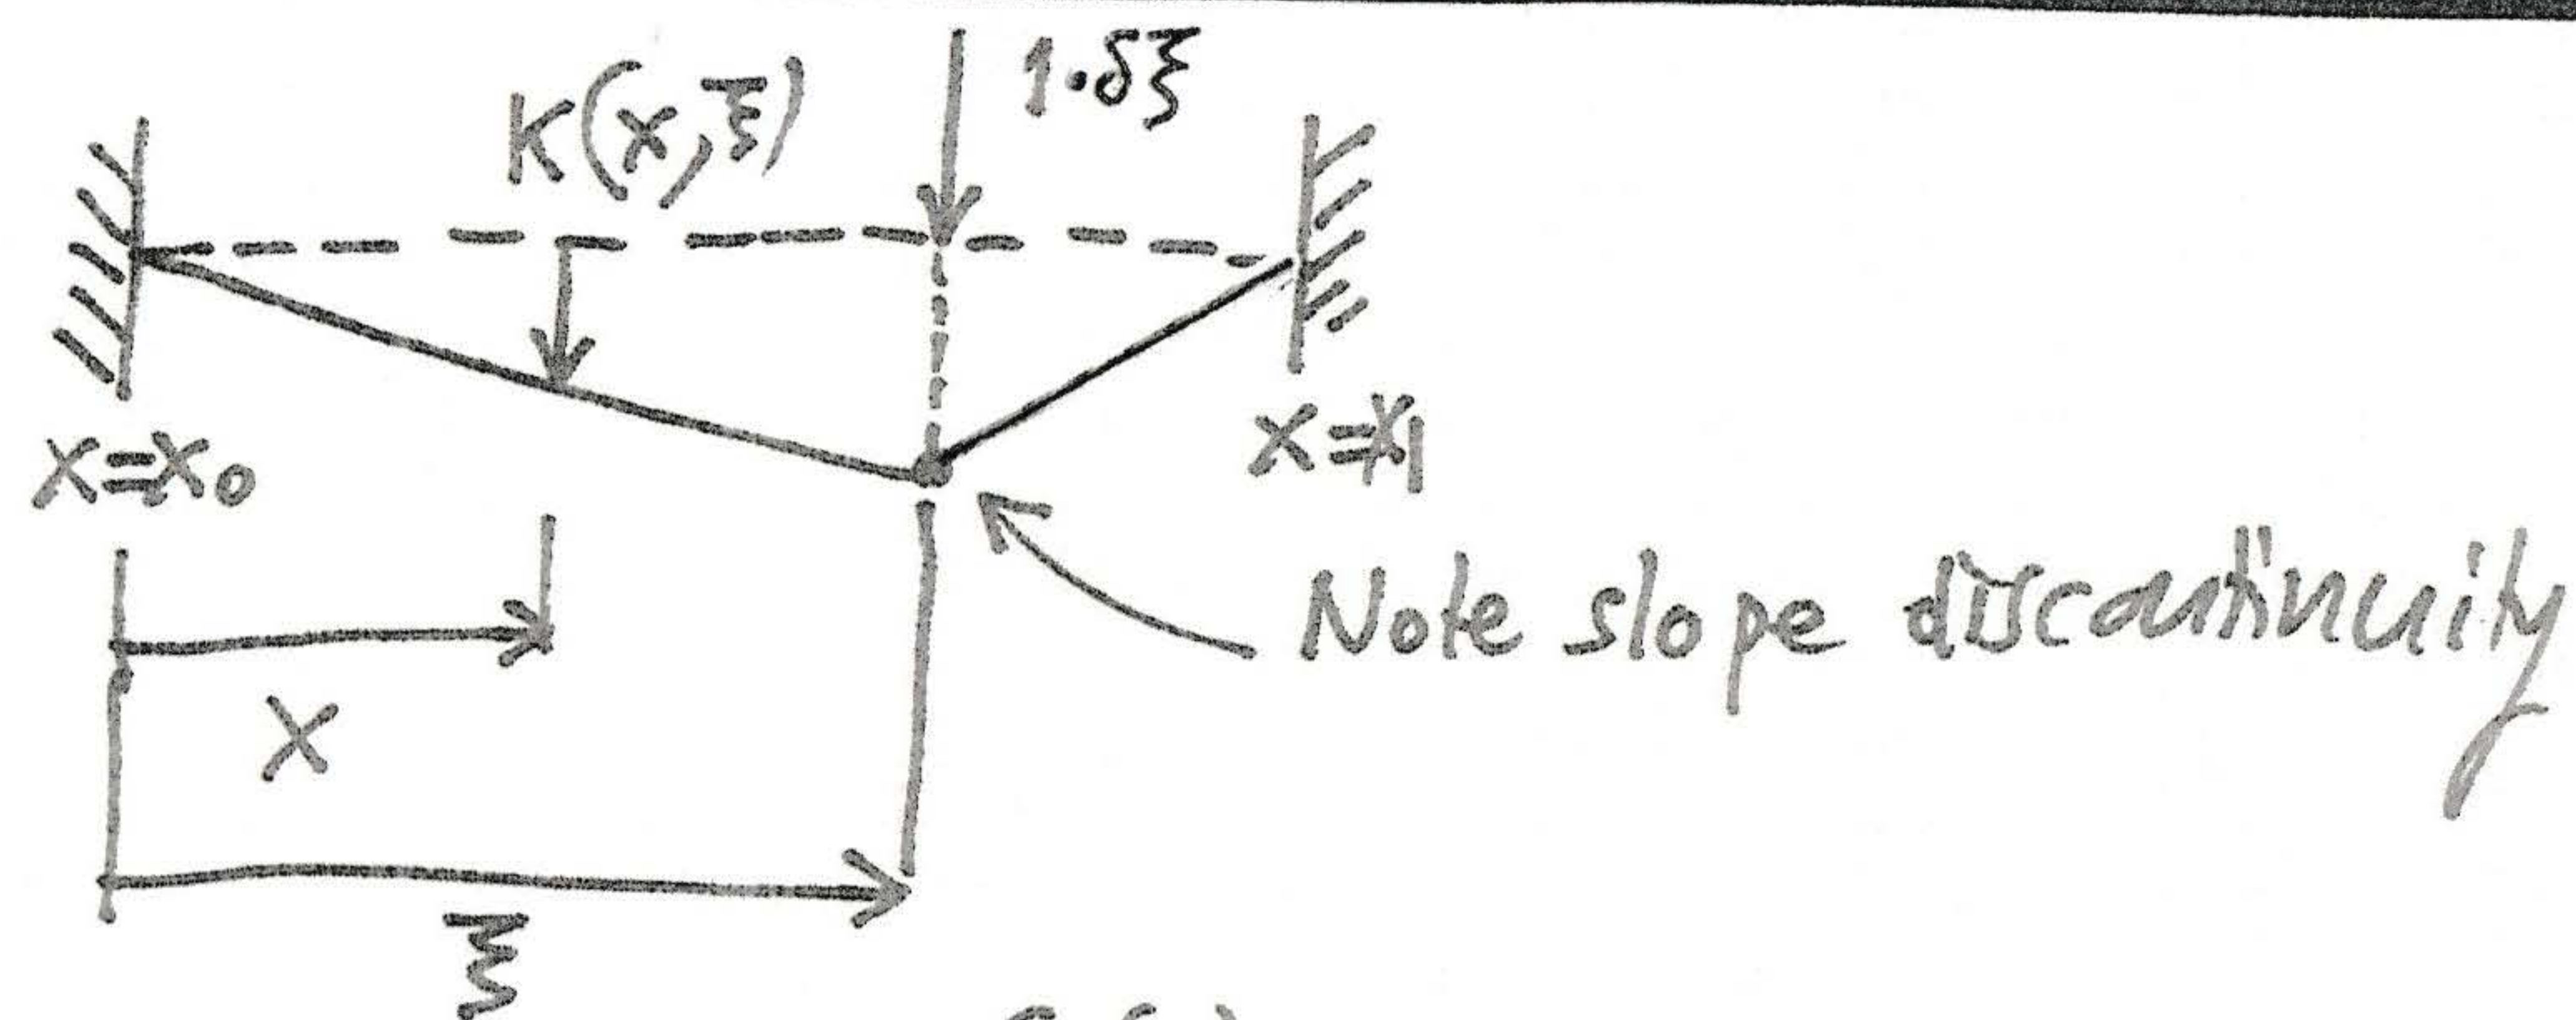 1·δξ
K(x,ξ)
x=x₀
x=x₁
Note slope discontinuity
x
ξ